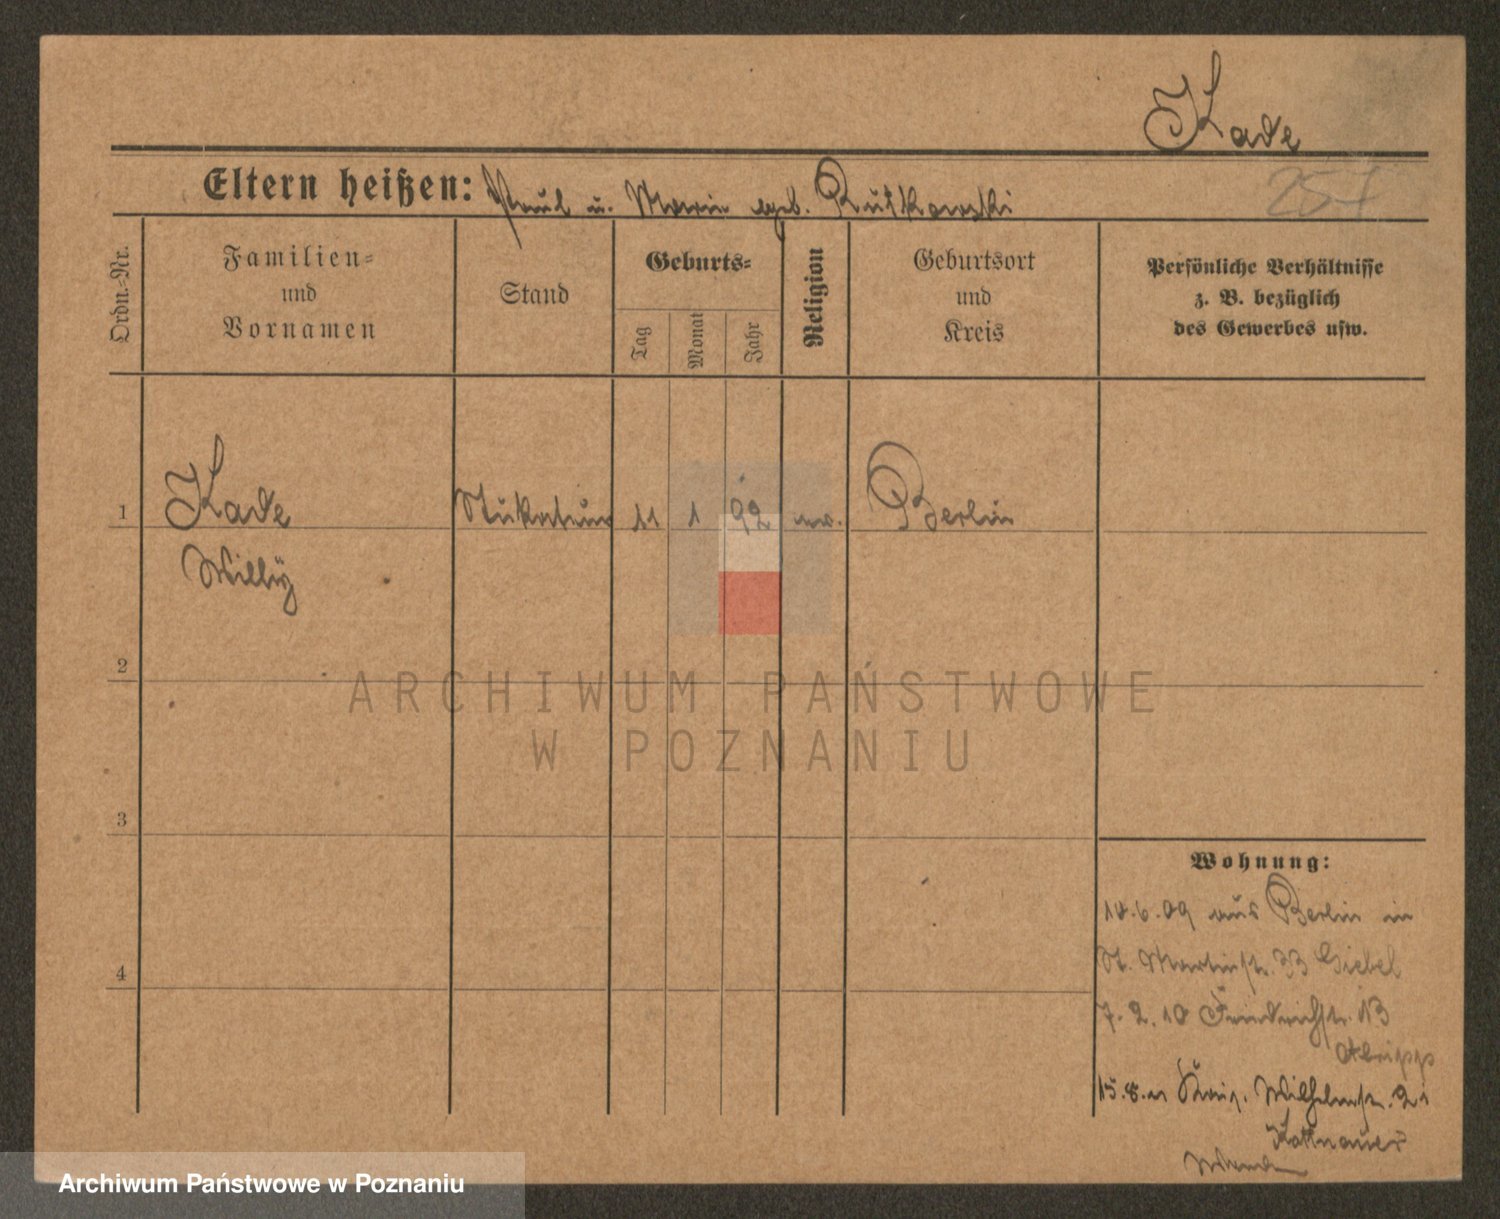 Kade
Eltern heißen: Paul u. Marie geb. Rutkowski
257
Ordn.-Nr.
Familien-
und
Vornamen
Stand
Geburts-
Tag
Monat
Jahr
Religion
Geburtsort
und
Kreis
Persönliche Verhältnisse
z. B. bezüglich
des Gewerbes usw.
1
Kade
Willy
Stukateur
11
1
92
ev.
Berlin
2
3
4
ARCHIWUM PAŃSTWOWE
W POZNANIU
Wohnung:
10.6.09 aus Berlin in
St. Martinstr. 33 Giebel
7.2.10 Friedrichstr. 13
15.8.11 Wilhelmstr. 21
Archiwum Państwowe w Poznaniu